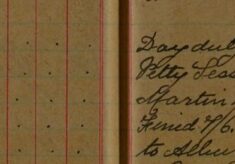 Day dut
Petty Sess
Martin
Fined 7/6.
to Allen